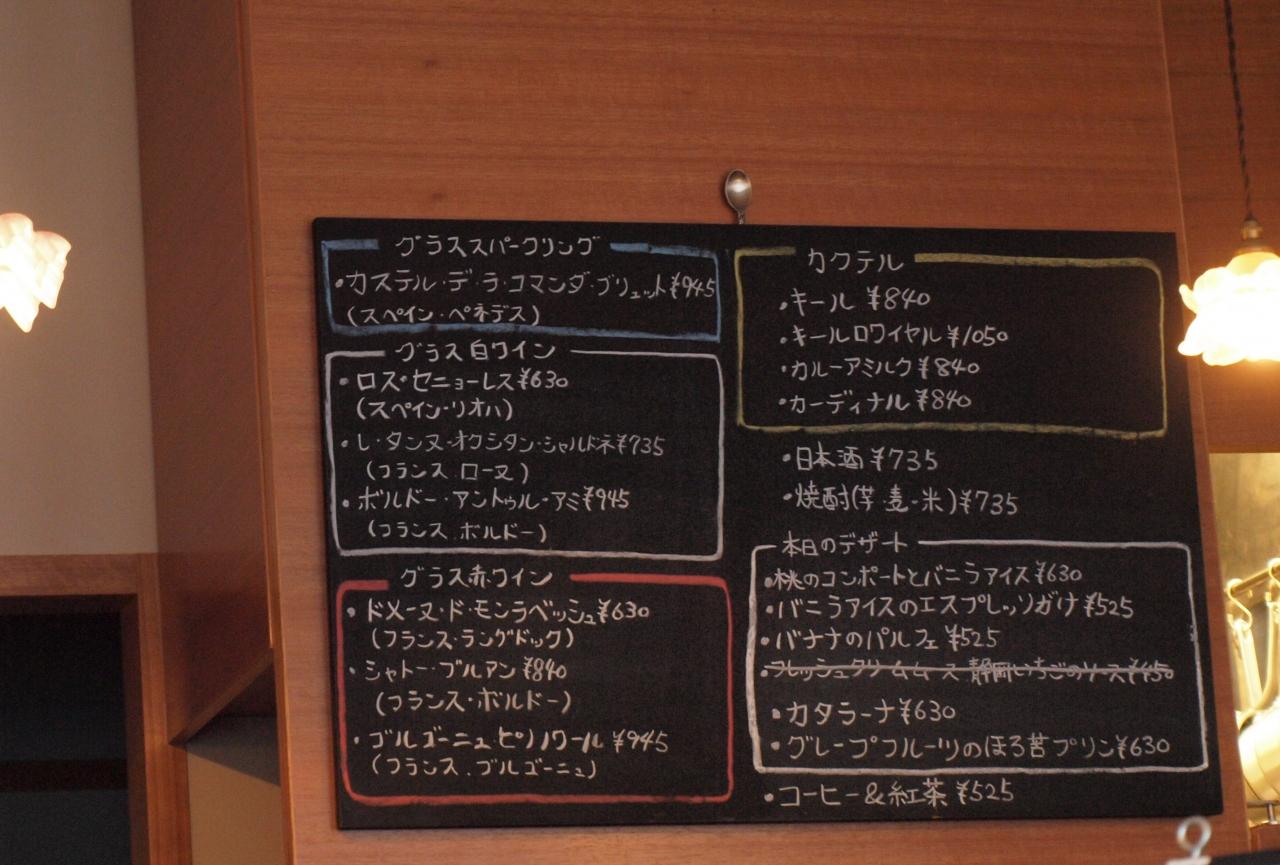 グラススパークリング
・カステル・デ・ラ・コマンダ・ブリュット¥945
(スペイン・ペネデス)
グラス白ワイン
・ロス・セニョーレス¥630
(スペイン・リオハ)
・レ・タンヌ・オクシタン・シャルドネ¥735
(フランス ローヌ)
・ボルドー・アントゥル・アミ¥945
(フランス.ボルドー)
グラス赤ワイン
・ドメーヌ・ド・モンラベッシュ¥630
(フランス・ラングドック)
・シャトー・ブルアン¥840
(フランス・ボルドー)
・ブルゴーニュ ピノノワール ¥945
(フランス.ブルゴーニュ)
カクテル
・キール ¥840
・キールロワイヤル ¥1050
・カルーアミルク ¥840
・カーディナル ¥840
・日本酒 ¥735
・焼酎(芋・麦・米)¥735
本日のデザート
・桃のコンポートとバニラアイス¥630
・バニラアイスのエスプレッソがけ¥525
・バナナのパルフェ ¥525
・フレッシュクリームムース 静岡いちごのソース
・カタラーナ¥630
・グレープフルーツのほろ苦プリン¥630
・コーヒー&紅茶 ¥525